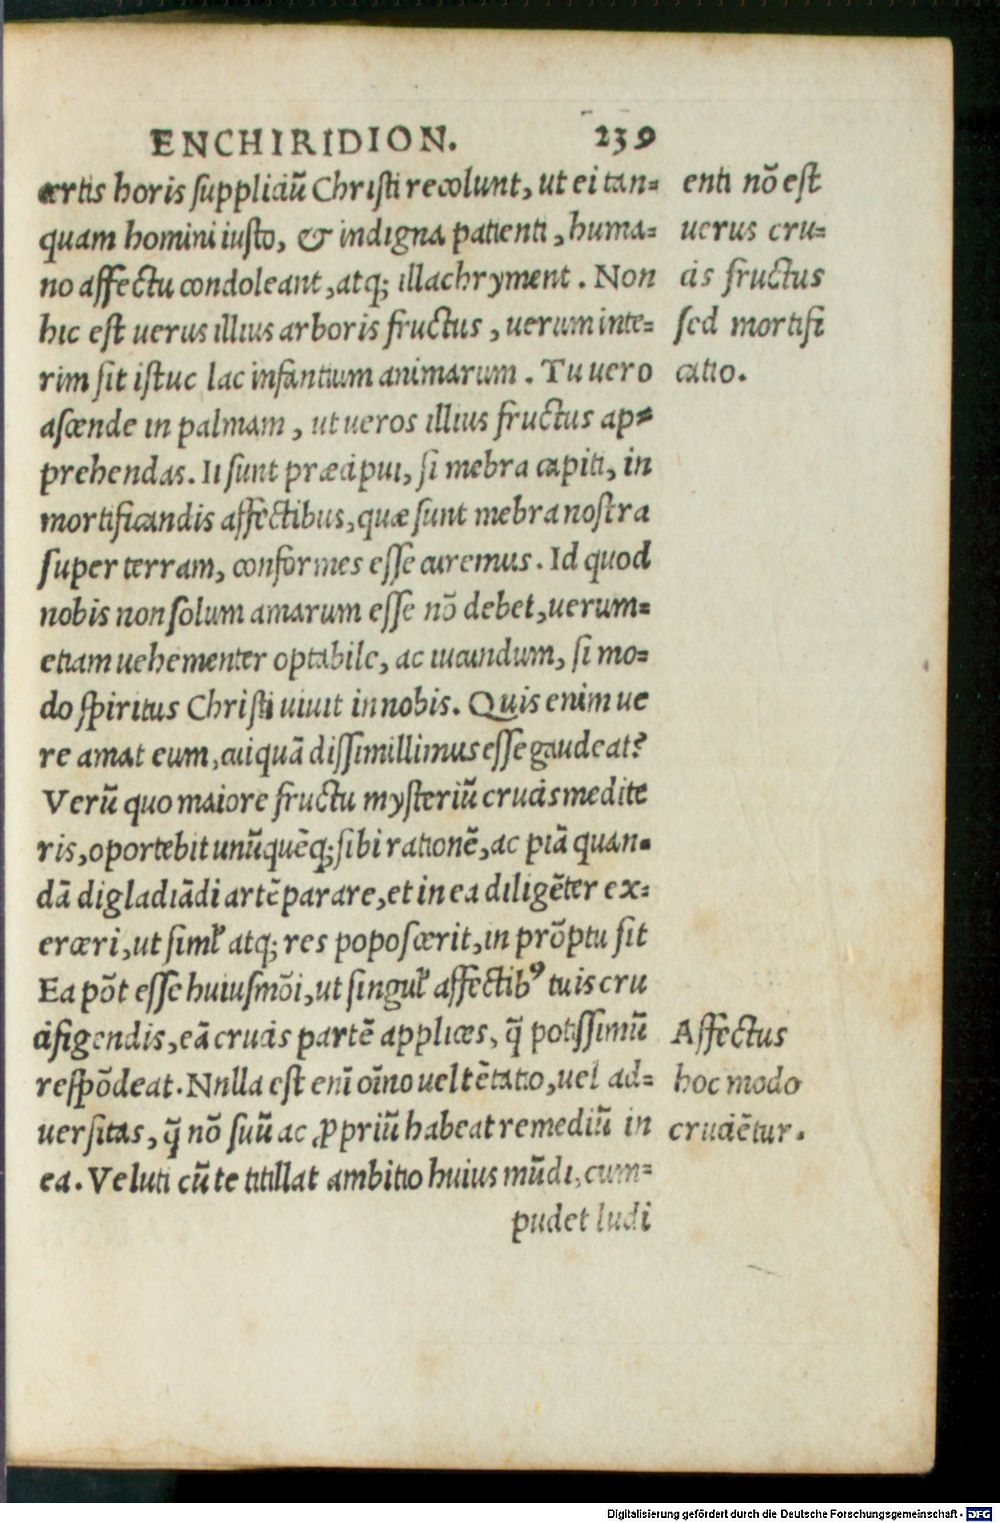 ENCHIRIDION. 239
certis horis suppliciū Christi recolunt, ut ei tan=
quam homini iusto, & indigna patienti, huma=
no affectu condoleant, atq; illachryment. Non
hic est uerus illius arboris fructus, uerum inte=
rim sit istuc lac infantium animarum. Tu uero
ascende in palmam, ut ueros illius fructus ap=
prehendas. Ii sunt præcipui, si mēbra capiti, in
mortificandis affectibus, quæ sunt mēbra nostra
super terram, conformes esse curemus. Id quod
nobis non solum amarum esse nō debet, uerum=
etiam uehementer optabile, ac iucundum, si mo=
do spiritus Christi uiuit in nobis. Quis enim ue
re amat eum, cui quā dissimillimus esse gaudeat?
Verū quo maiore fructu mysteriū crucis medite
ris, oportebit unūquēq; sibi rationē, ac piā quan=
dā digladiādi artē parare, et in ea diligēter ex=
erceri, ut simł atq; res poposcerit, in prōptu sit
Ea pōt esse huiusmōi, ut singuł affectibꝰ tuis cru
cifigendis, eā crucis partē applices, q̄ potissimū
respōdeat. Nnlla est enī oīno uel tētatio, uel ad=
uersitas, q̄ nō suū ac ꝓpriū habeat remediū in
ea. Veluti cū te titillat ambitio huius mūdi, cum=
pudet ludi
enti nō est
uerus cru=
cis fructus
sed mortifi
catio.
Affectus
hoc modo
cruciētur.
Digitalisierung gefördert durch die Deutsche Forschungsgemeinschaft - DFG